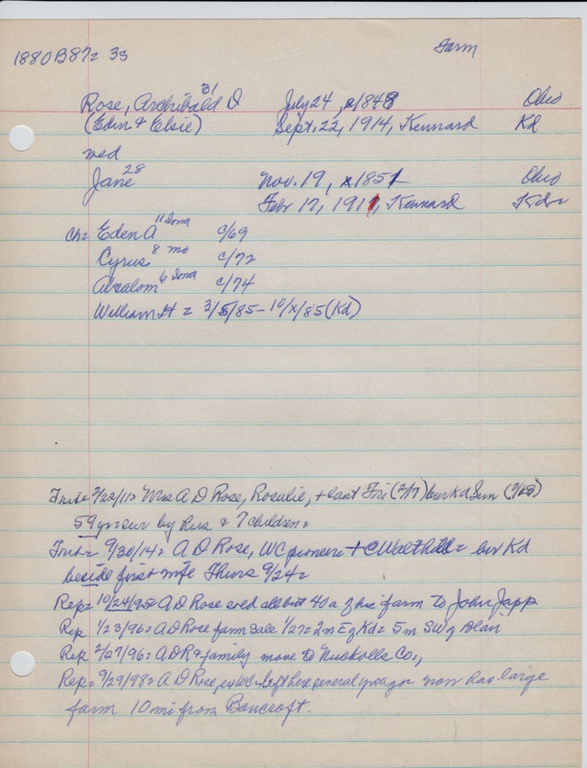 1880 B872 33
Farm
Rose, Archibald D 31 July 24, x1848 Ohio
(Eden & Elsie) Sept. 22, 1914, Kennard Kd
med
Jane 28 Nov. 19, x1851 Ohio
Febr 17, 1911, Kennard
Ch= Eden A 11 Iowa c/69
Cyrus 8 mo c/72
Absalom 6 Iowa c/74
William H = 3/5/85 - 10/x/85 (Kd)
Trib= 2/22/11= Mrs A D Rose, Rosalie, + last Fri (2/17) bur Kd Sun (2/19)
59 yr= sur by hus & 7 children=
Trib= 9/30/14= A D Rose, WC pioneer + Walthill= bur Kd
beside first wife Thurs 9/24=
Rep= 10/24/95= A D Rose all but 40 a of his farm to John Japp
Rep 1/23/96= A D Rose farm sale 1/27= 2m E of Kd= 5m SW of Blair
Rep 2/27/96= A D R & family move to Nuckolls Co.,
Rep= 9/29/98= A D Rose, left here several yrs ago now has large
farm 10 mi from Bancroft.